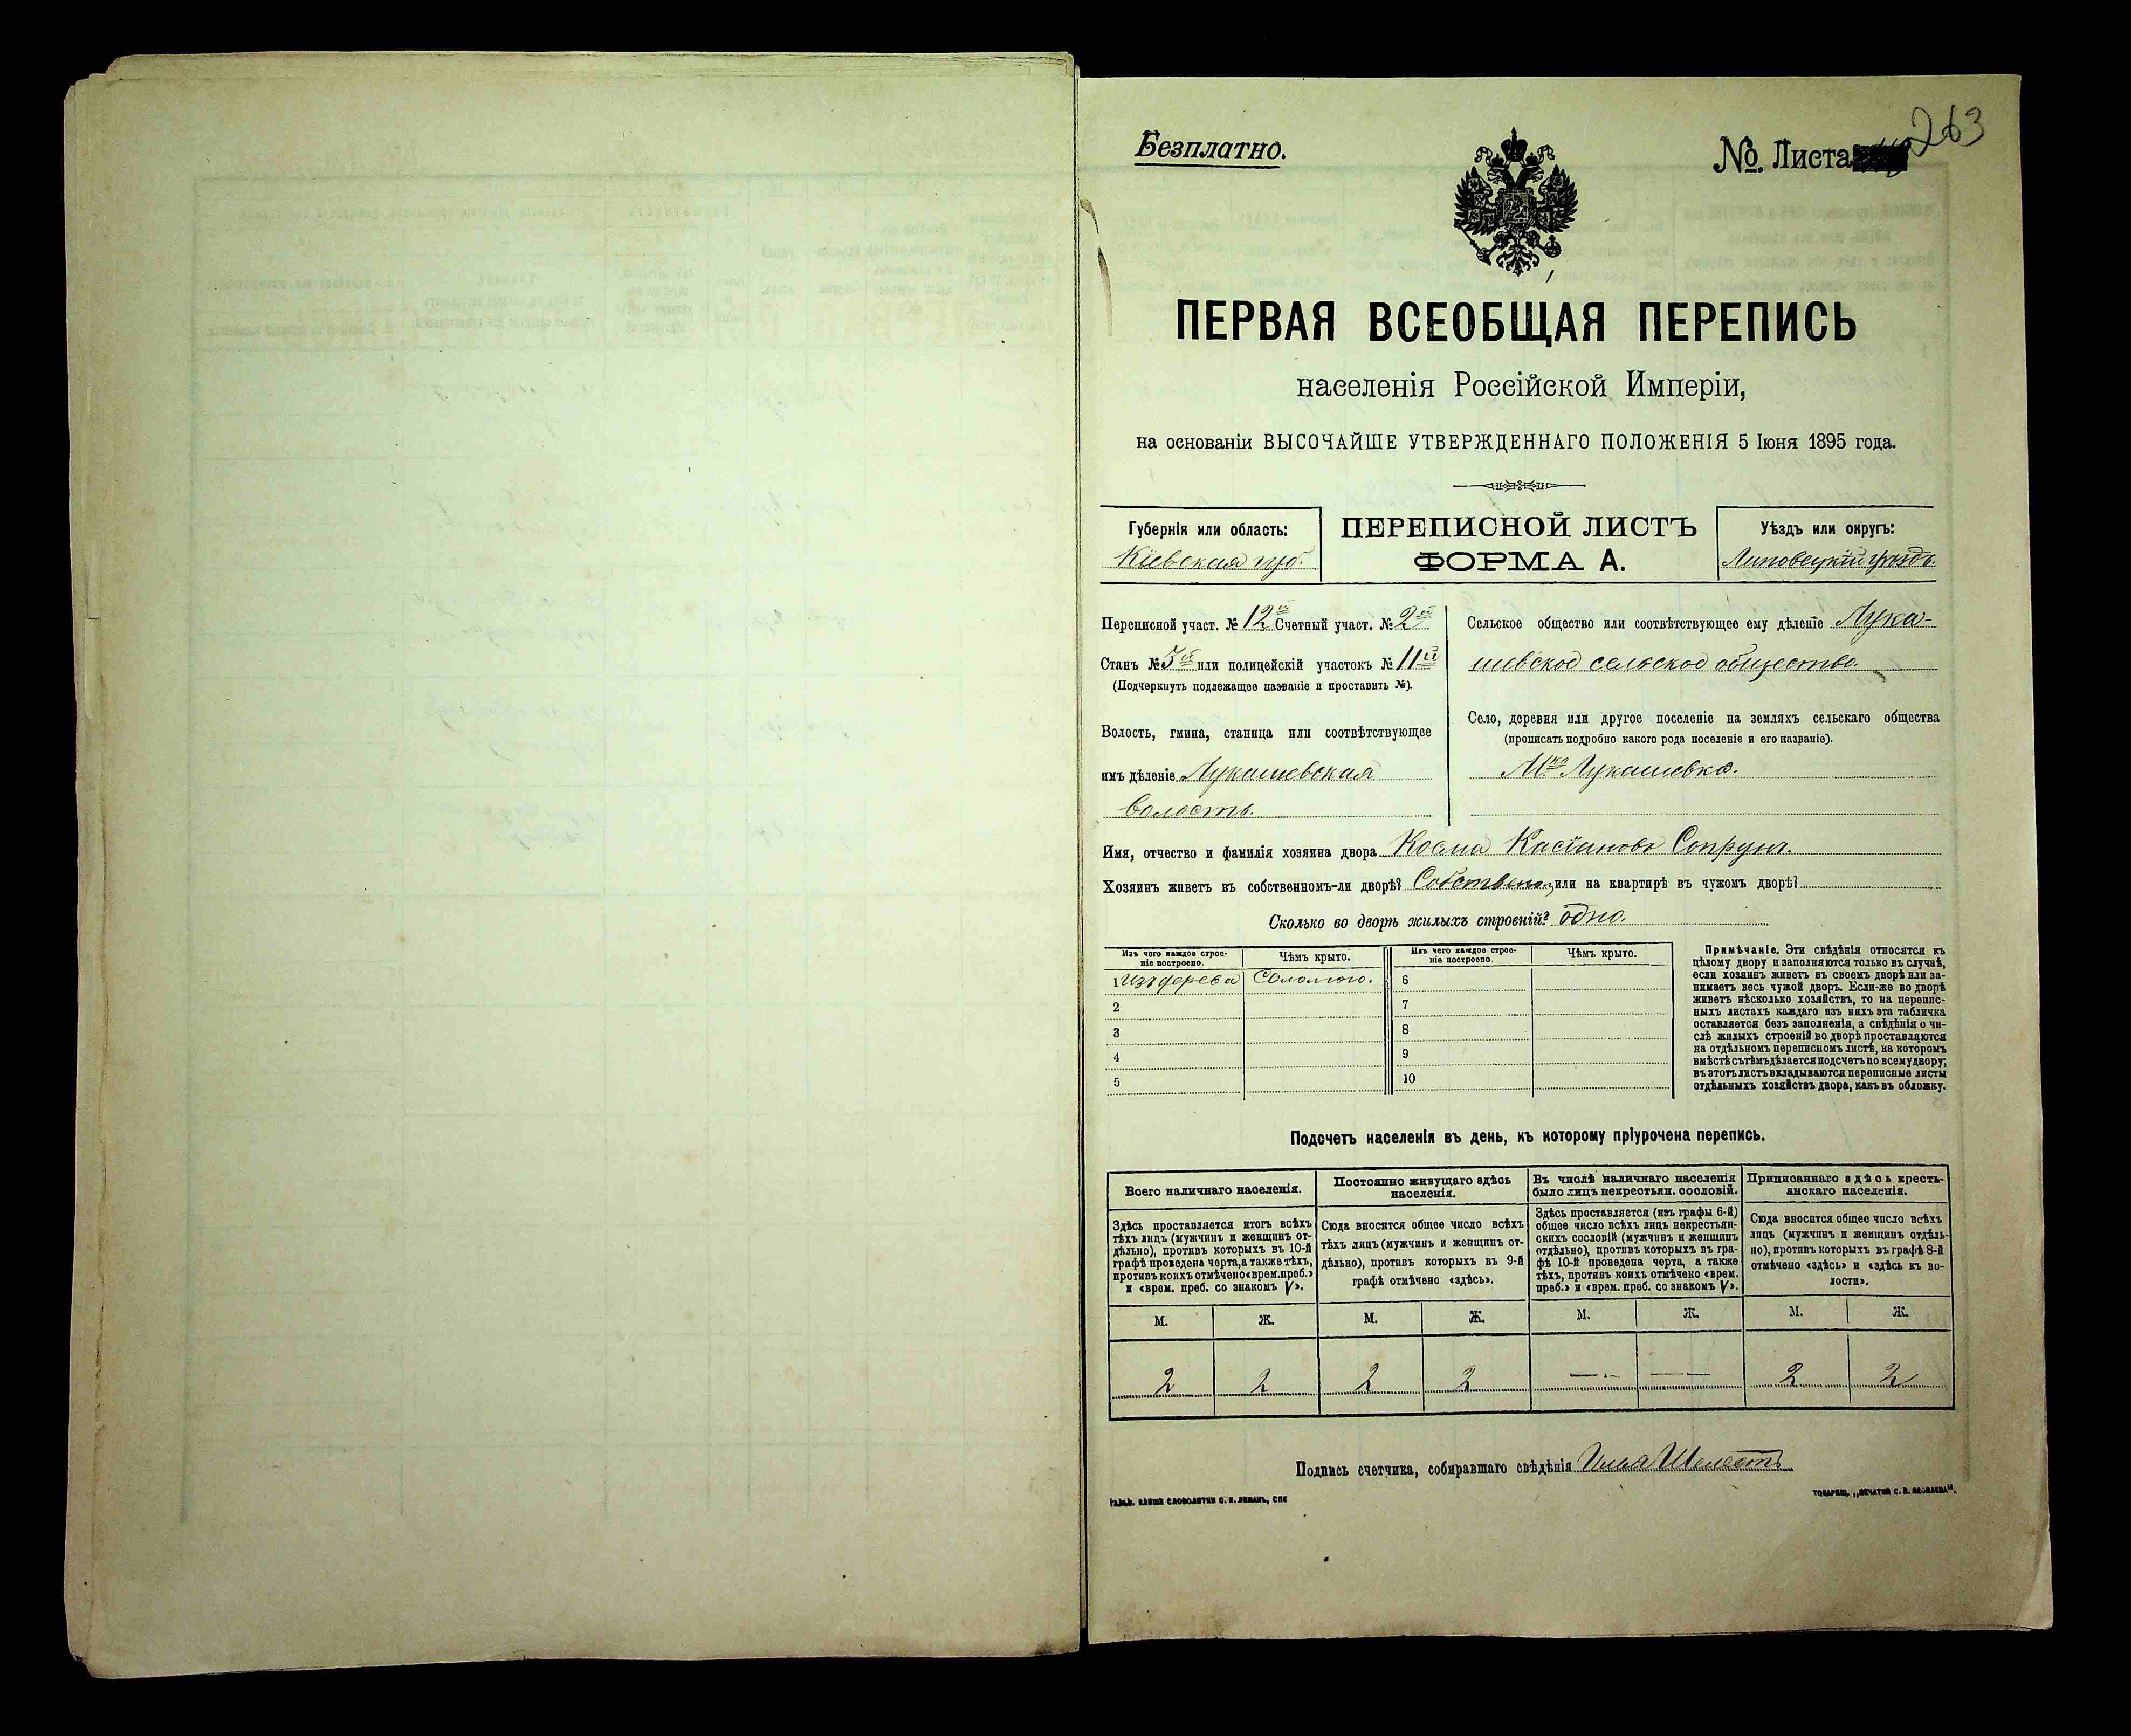 Безплатно.
№. Листа
263
ПЕРВАЯ ВСЕОБЩАЯ ПЕРЕПИСЬ
населенія Россійской Имперіи,
на основаніи ВЫСОЧАЙШЕ УТВЕРЖДЕННАГО ПОЛОЖЕНІЯ 5 Іюня 1895 года.
Губернія или область:
Кіевская губ.
ПЕРЕПИСНОЙ ЛИСТЪ
ФОРМА А.
Уѣздъ или округъ:
Липовецкій уѣздъ.
Переписной участ. № 12й Счетный участ. № 2й
Станъ № 3й или полицейскій участокъ № 11й
(Подчеркнуть подлежащее названіе и проставить №).
Волость, гмина, станица или соотвѣтствующее
имъ дѣленіе Лукашевская
волость.
Сельское общество или соотвѣтствующее ему дѣленіе Лука-
шевское сельское общество.
Село, деревня или другое поселеніе на земляхъ сельскаго общества
(прописать подробно какого рода поселеніе и его названіе).
М-ко Лукашевка.
Имя, отчество и фамилія хозяина двора Косма Касіановъ Сопрунъ.
Хозяинъ живетъ въ собственномъ-ли дворѣ? Собствено, или на квартирѣ въ чужомъ дворѣ?
Сколько во дворѣ жилыхъ строеній? одно.
Изъ чего каждое строе-
ніе построено.
Чѣмъ крыто.
Изъ чего каждое строе-
ніе построено.
Чѣмъ крыто.
1 Изъ дерева Соломою. 6
2 7
3 8
4 9
5 10
Примѣчаніе. Эти свѣдѣнія относятся къ
цѣлому двору и заполняются только въ случаѣ,
если хозяинъ живетъ въ своемъ дворѣ или за-
нимаетъ весь чужой дворъ. Если-же во дворѣ
живетъ нѣсколько хозяйствъ, то на перепис-
ныхъ листахъ каждаго изъ нихъ эта табличка
оставляется безъ заполненія, а свѣдѣнія о чи-
слѣ жилыхъ строеній во дворѣ проставляются
на отдѣльномъ переписномъ листѣ, на которомъ
вмѣстѣ съ тѣмъ дѣлается подсчетъ по всему двору;
въ этотъ листъ вкладываются переписные листы
отдѣльныхъ хозяйствъ двора, какъ въ обложку.
Подсчетъ населенія въ день, къ которому пріурочена перепись.
Всего наличнаго населенія.
Здѣсь проставляется итогъ всѣхъ
тѣхъ лицъ (мужчинъ и женщинъ от-
дѣльно), противъ которыхъ въ 10-й
графѣ проведена черта, а также тѣхъ,
противъ коихъ отмѣчено «врем. преб.»
и «врем. преб. со знакомъ V».
Постоянно живущаго здѣсь
населенія.
Сюда вносится общее число всѣхъ
тѣхъ лицъ (мужчинъ и женщинъ от-
дѣльно), противъ которыхъ въ 9-й
графѣ отмѣчено «здѣсь».
Въ числѣ наличнаго населенія
было лицъ некрестьян. сословій.
Здѣсь проставляется (изъ графы 6-й)
общее число всѣхъ лицъ некрестьян-
скихъ сословій (мужчинъ и женщинъ
отдѣльно), противъ которыхъ въ гра-
фѣ 10-й проведена черта, а также
тѣхъ, противъ коихъ отмѣчено «врем.
преб.» и «врем. преб. со знакомъ V».
Приписаннаго здѣсь кресть-
янскаго населенія.
Сюда вносится общее число всѣхъ
лицъ (мужчинъ и женщинъ отдѣль-
но), противъ которыхъ въ графѣ 8-й
отмѣчено «здѣсь» и «здѣсь къ во-
лости».
М. Ж. М. Ж. М. Ж. М. Ж.
2 2 2 2 — — 2 2
Подпись счетчика, собиравшаго свѣдѣнія Илья Шелестъ
ТОВАРИЩ. „ПЕЧАТНЯ С. П. ЯКОВЛЕВА“.